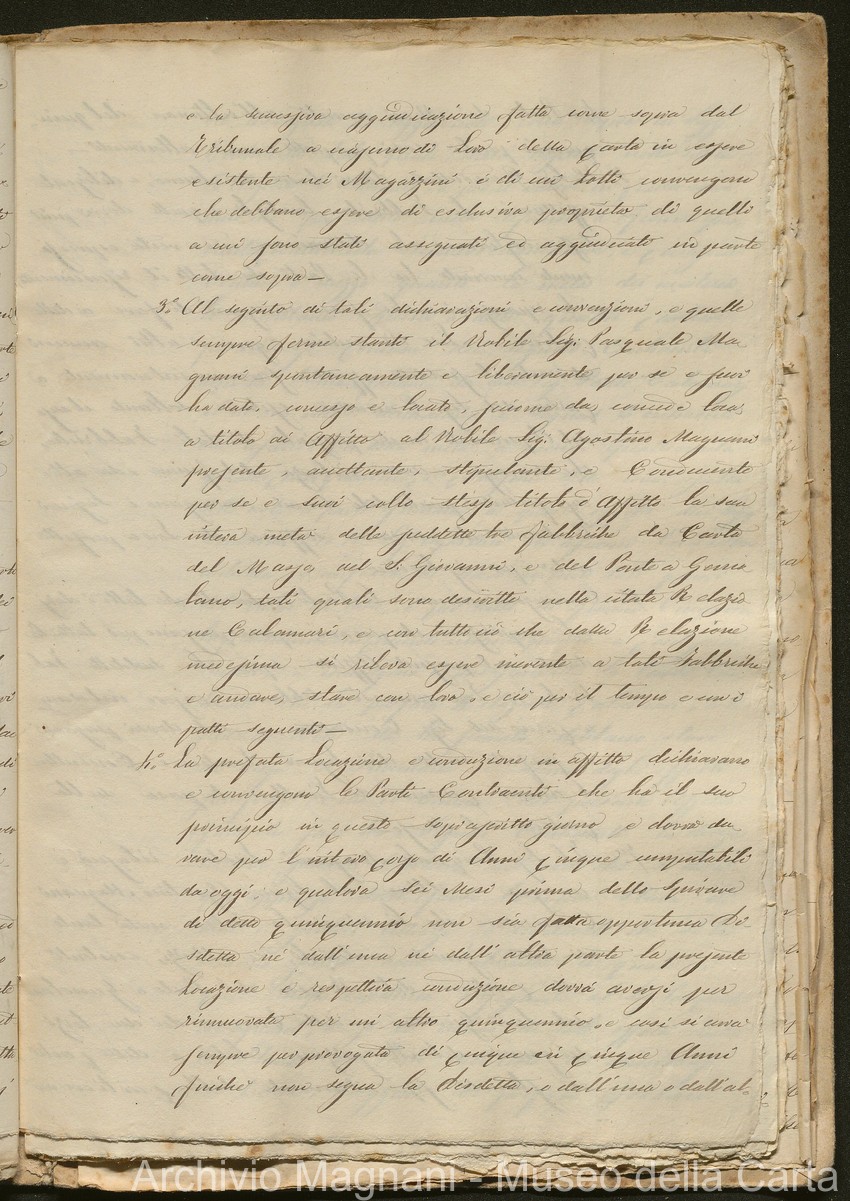 e la successiva aggiudicazione fatta come sopra dal
Tribunale a ciascuno di Loro della Carta in essere
esistente nei Magazzini e di cui Lotti convengono
che debbano essere di esclusiva proprietà di quelli
a cui sono stati assegnati ed aggiudicati in parte
come sopra—
3.º Al seguito di tali dichiarazioni e convenzioni, e quelle
sempre ferme stanti il Nobile Sig: Pasquale Ma-
gnani spontaneamente e liberamente per se e suoi
ha dato, concesso e locato, siccome da, concede loca,
a titolo di Affitto al Nobile Sig: Agostino Magnani
presente, accettante, stipulante, e Conducente
per se e suoi collo stesso titolo d'Affitto la sua
intera metà delle suddette tre fabbriche da Carta
del Masso, del S. Giovanni, e del Ponte a Goraio-
lano, tali quali sono descritte nella citata Relazio
ne Calamari, e con tutto ciò che dalla Relazione
medesima si rileva essere inerente a tali Fabbriche
e andare, stare con loro, e ciò per il tempo e con i
patti seguenti—
4.º La prefata Locazione e conduzione in affitto dichiarano
e convengono le Parti Contraenti che ha il suo
principio in questo soprascritto giorno e dovrà du-
rare per l'intero corso di Anni Cinque computabili
da oggi, e qualora Sei Mesi prima dello spirare
di detto quinquennio non sia fatta opportuna Di-
sdetta nè dall'una nè dall'altra parte la presente
Locazione e respettiva conduzione dovrà aversi per
rinnuovata per un altro quinquennio, e così si avrà
sempre per prorogata di cinque in cinque Anni
finchè non segua la Disdetta, o dall'una o dall'al-
Archivio Magnani - Museo della Carta